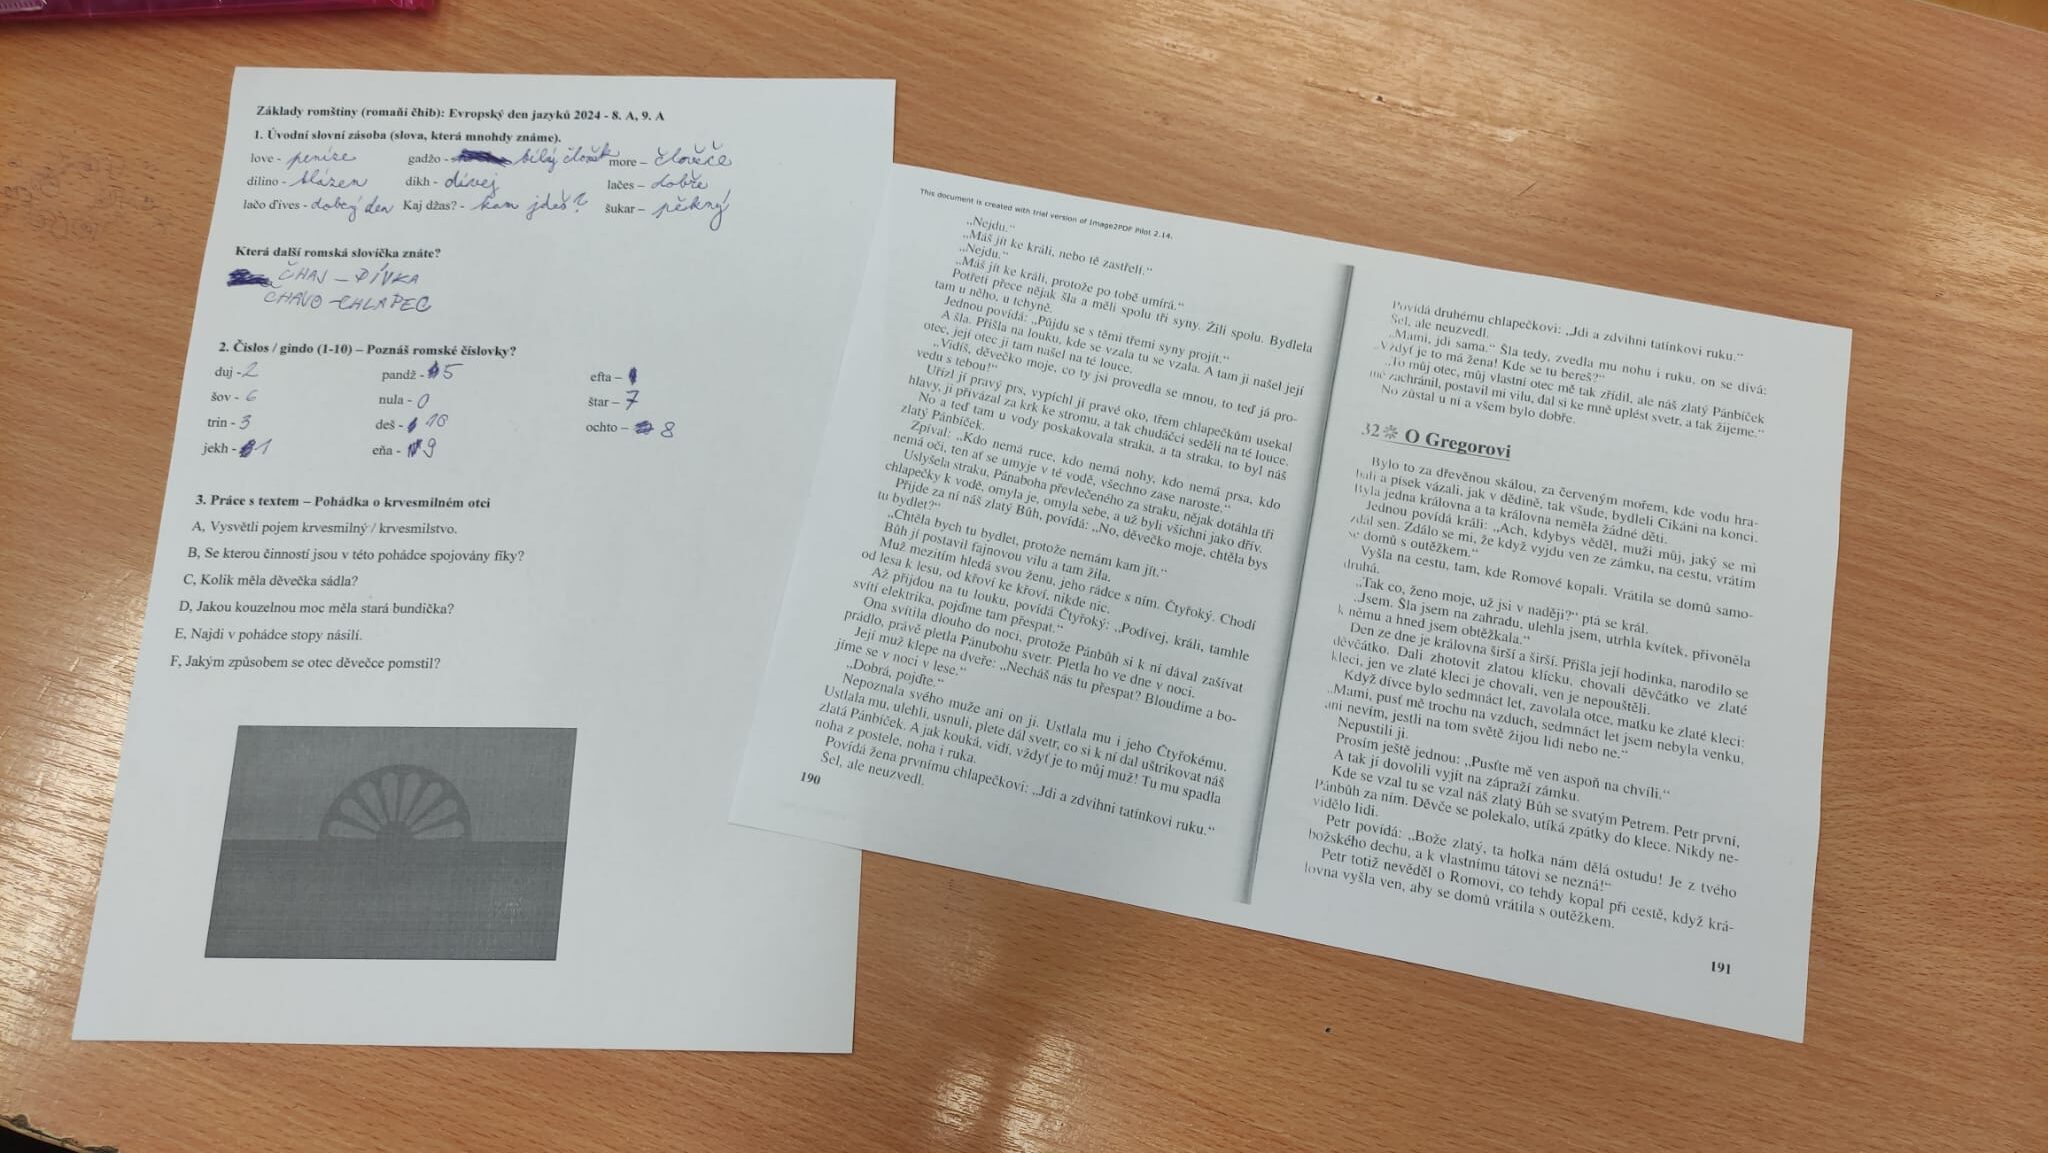 Základy romštiny (romaňi čhib): Evropský den jazyků 2024 - 8. A, 9. A
1. Úvodní slovní zásoba (slova, která mnohdy známe).
love - peníze gadžo - bílý člověk more – člověče
dilino - blázen dikh - dívej lačes – dobře
lačo ďives - dobrý den Kaj džas? - kam jdeš? šukar – pěkný
Která další romská slovíčka znáte?
ČHAJ – DÍVKA
ČHAVO - CHLAPEC
2. Čislos / gindo (1-10) – Poznáš romské číslovky?
duj - 2 pandž - 5 efta –
šov - 6 nula - 0 štar – 7
trin - 3 deš - 10 ochto – 8
jekh - 1 eňa - 9
3. Práce s textem – Pohádka o krvesmilném otci
A, Vysvětli pojem krvesmilný / krvesmilstvo.
B, Se kterou činností jsou v této pohádce spojovány fíky?
C, Kolik měla děvečka sádla?
D, Jakou kouzelnou moc měla stará bundička?
E, Najdi v pohádce stopy násilí.
F, Jakým způsobem se otec děvečce pomstil?
This document is created with trial version of Image2PDF Pilot 2.14.
„Nejdu.“
„Máš jít ke králi, nebo tě zastřelí.“
„Nejdu.“
„Máš jít ke králi, protože po tobě umírá.“
Potřetí přece nějak šla a měli spolu tři syny. Žili spolu. Bydlela
tam u něho, u tchyně.
Jednou povídá: „Půjdu se s těmi třemi syny projít.“
A šla. Přišla na louku, kde se vzala tu se vzala. A tam ji našel její
otec, její otec ji tam našel na té louce.
„Vidíš, děvečko moje, co ty jsi provedla se mnou, to teď já pro-
vedu s tebou!“
Uřízl jí pravý prs, vypíchl jí pravé oko, třem chlapečkům usekal
hlavy, jí přivázal za krk ke stromu, a tak chudáčci seděli na té louce.
No a teď tam u vody poskakovala straka, a ta straka, to byl náš
zlatý Pánbíček.
Zpíval: „Kdo nemá ruce, kdo nemá nohy, kdo nemá prsa, kdo
nemá oči, ten ať se umyje v té vodě, všechno zase naroste.“
Uslyšela straku, Pánaboha převlečeného za straku, nějak dotáhla tři
chlapečky k vodě, omyla je, omyla sebe, a už byli všichni jako dřív.
Přijde za ní náš zlatý Bůh, povídá: „No, děvečko moje, chtěla bys
tu bydlet?“
„Chtěla bych tu bydlet, protože nemám kam jít.“
Bůh jí postavil fajnovou vilu a tam žila.
Muž mezitím hledá svou ženu, jeho rádce s ním. Čtyřoký. Chodí
od lesa k lesu, od křoví ke křoví, nikde nic.
Až přijdou na tu louku, povídá Čtyřoký: „Podívej, králi, tamhle
svítí elektrika, pojďme tam přespat.“
Ona svítila dlouho do noci, protože Pánbůh si k ní dával zašívat
prádlo, právě pletla Pánubohu svetr. Pletla ho ve dne v noci.
Její muž klepe na dveře: „Necháš nás tu přespat? Bloudíme a bo-
jíme se v noci v lese.“
„Dobrá, pojďte.“
Nepoznala svého muže ani on ji. Ustlala mu i jeho Čtyřokému.
Ustlala mu, ulehli, usnuli, plete dál svetr, co si k ní dal uštrikovat náš
zlatá Pánbíček. A jak kouká, vidí, vždyť je to můj muž! Tu mu spadla
noha z postele, noha i ruka.
Povídá žena prvnímu chlapečkovi: „Jdi a zdvihni tatínkovi ruku.“
Šel, ale neuzvedl.
190
Povídá druhému chlapečkovi: „Jdi a zdvihni tatínkovi ruku.“
Šel, ale neuzvedl.
„Mami, jdi sama.“ Šla tedy, zvedla mu nohu i ruku, on se dívá:
„Vždyť je to má žena! Kde se tu bereš?“
„To můj otec, můj vlastní otec mě tak zřídil, ale náš zlatý Pánbíček
mě zachránil, postavil mi vilu, dal si ke mně uplést svetr, a tak žijeme.“
No zůstal u ní a všem bylo dobře.
32 O Gregorovi
Bylo to za dřevěnou skálou, za červeným mořem, kde vodu hra-
bali a písek vázali, jak v dědině, tak všude, bydleli Cikáni na konci.
Byla jedna královna a ta královna neměla žádné děti.
Jednou povídá králi: „Ach, kdybys věděl, muži můj, jaký se mi
zdál sen. Zdálo se mi, že když vyjdu ven ze zámku, na cestu, vrátím
se domů s outěžkem.“
Vyšla na cestu, tam, kde Romové kopali. Vrátila se domů samo-
druhá.
„Tak co, ženo moje, už jsi v naději?“ ptá se král.
„Jsem. Šla jsem na zahradu, ulehla jsem, utrhla kvítek, přivoněla
k němu a hned jsem obtěžkala.“
Den ze dne je královna širší a širší. Přišla její hodinka, narodilo se
děvčátko. Dali zhotovit zlatou klícku, chovali děvčátko ve zlaté
kleci, jen ve zlaté kleci je chovali, ven je nepouštěli.
Když dívce bylo sedmnáct let, zavolala otce, matku ke zlaté kleci:
„Mami, pusť mě trochu na vzduch, sedmnáct let jsem nebyla venku,
ani nevím, jestli na tom světě žijou lidi nebo ne.“
Nepustili ji.
Prosím ještě jednou: „Pusťte mě ven aspoň na chvíli.“
A tak jí dovolili vyjít na zápraží zámku.
Kde se vzal tu se vzal náš zlatý Bůh se svatým Petrem. Petr první,
Pánbůh za ním. Děvče se polekalo, utíká zpátky do klece. Nikdy ne-
vidělo lidi.
Petr povídá: „Bože zlatý, ta holka nám dělá ostudu! Je z tvého
božského dechu, a k vlastnímu tátovi se nezná!“
Petr totiž nevěděl o Romovi, co tehdy kopal při cestě, když krá-
lovna vyšla ven, aby se domů vrátila s outěžkem.
191